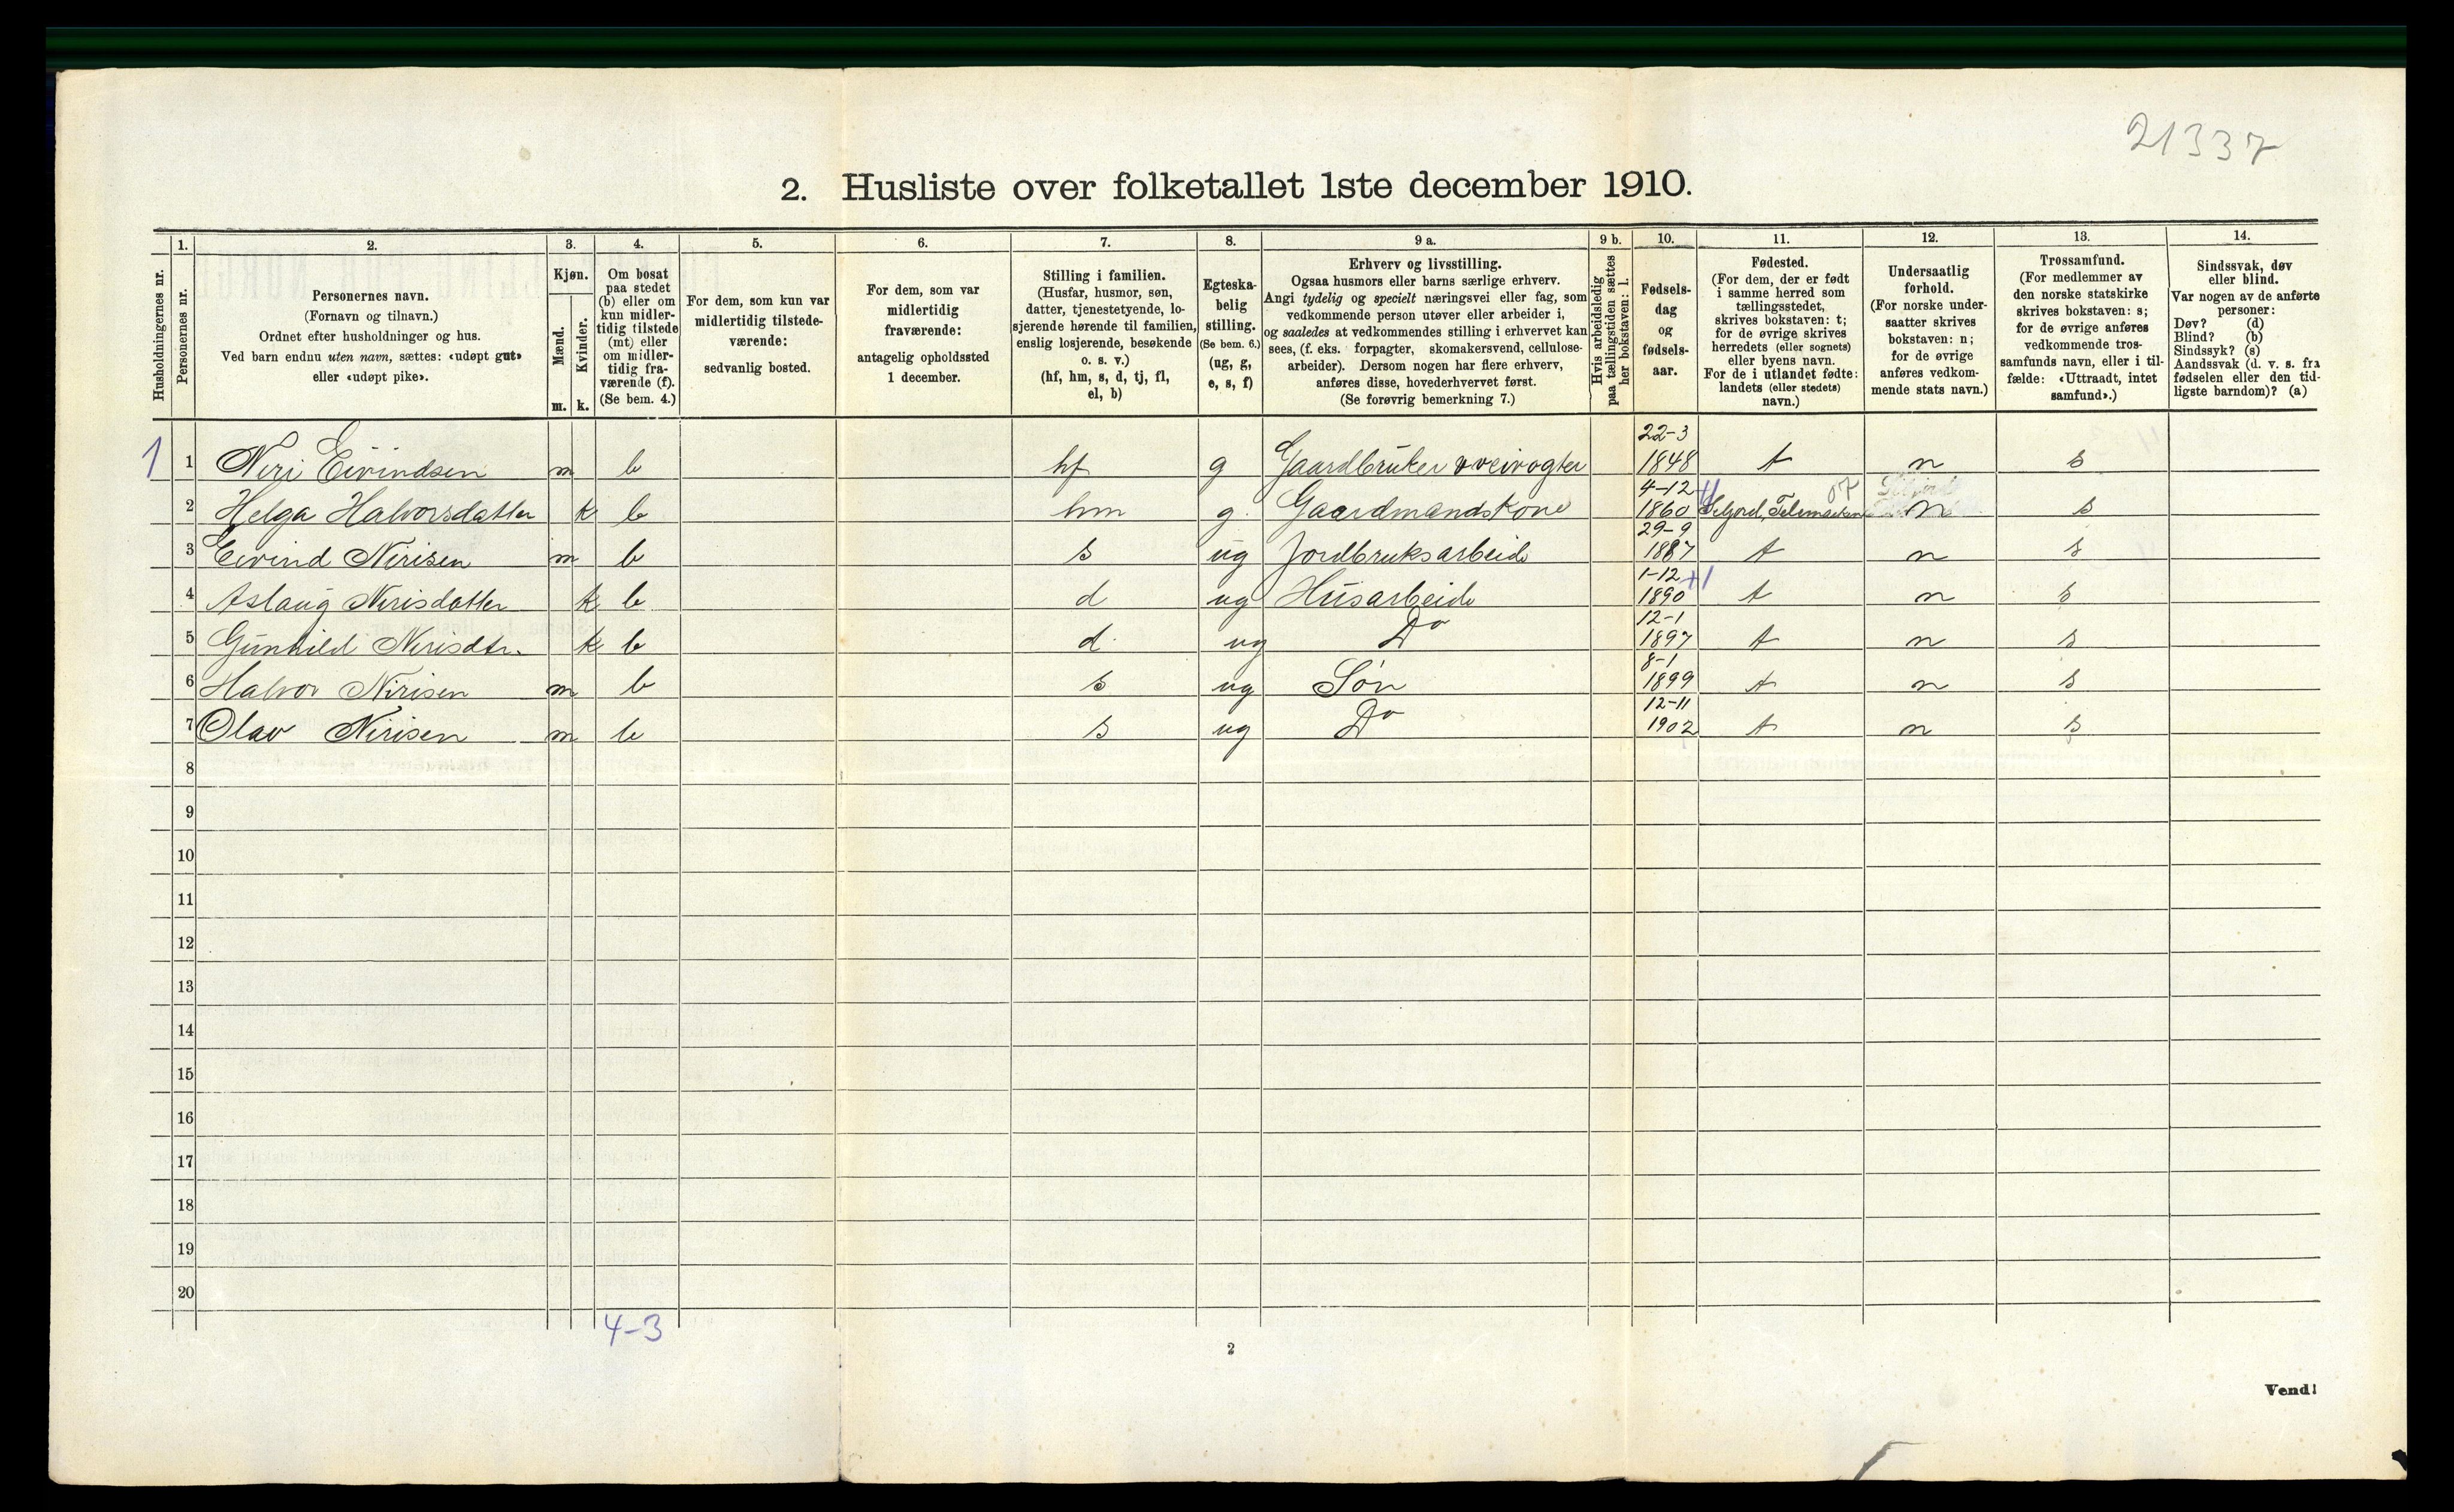 21337
2. Husliste over folketallet 1ste december 1910.
Husholdningernes nr.
1.
Personernes nr.
2.
Personernes navn.
(Fornavn og tilnavn.)
Ordnet efter husholdninger og hus.
Ved barn endnu uten navn, sættes: «udøpt gut»
eller «udøpt pike».
3.
Kjøn.
Mænd.
Kvinder.
m. k.
4.
Om bosat
paa stedet
(b) eller om
kun midler-
tidig tilstede
(mt) eller
om midler-
tidig fra-
værende (f).
(Se bem. 4.)
5.
For dem, som kun var
midlertidig tilstede-
værende:
sedvanlig bosted.
6.
For dem, som var
midlertidig
fraværende:
antagelig opholdssted
1 december.
7.
Stilling i familien.
(Husfar, husmor, søn,
datter, tjenestetyende, lo-
sjerende hørende til familien,
enslig losjerende, besøkende
o. s. v.)
(hf, hm, s, d, tj, fl,
el, b)
8.
Egteska-
belig
stilling.
(Se bem. 6.)
(ug, g,
e, s, f)
9 a.
Erhverv og livsstilling.
Ogsaa husmors eller barns særlige erhverv.
Angi tydelig og specielt næringsvei eller fag, som
vedkommende person utøver eller arbeider i,
og saaledes at vedkommendes stilling i erhvervet kan
sees, (f. eks. forpagter, skomakersvend, cellulose-
arbeider). Dersom nogen har flere erhverv,
anføres disse, hovederhvervet først.
(Se forøvrig bemerkning 7.)
9 b.
Hvis arbeidsledig
paa tællingstiden sættes
her bokstaven: l.
10.
Fødsels-
dag
og
fødsels-
aar.
11.
Fødested.
(For dem, der er født
i samme herred som
tællingsstedet,
skrives bokstaven: t;
for de øvrige skrives
herredets (eller sognets)
eller byens navn.
For de i utlandet fødte:
landets (eller stedets)
navn.)
12.
Undersaatlig
forhold.
(For norske under-
saatter skrives
bokstaven: n;
for de øvrige
anføres vedkom-
mende stats navn.)
13.
Trossamfund.
(For medlemmer av
den norske statskirke
skrives bokstaven: s;
for de øvrige anføres
vedkommende tros-
samfunds navn, eller i til-
fælde: «Uttraadt, intet
samfund».)
14.
Sindssvak, døv
eller blind.
Var nogen av de anførte
personer:
Døv? (d)
Blind? (b)
Sindssyk? (s)
Aandssvak (d. v. s. fra
fødselen eller den tid-
ligste barndom)? (a)
1 1 Neri Eivindsen m b hf g Gaardbruker v veivogter 22-3 1848 t n s
2 Helga Halvorsdatter k b hm g. Gaardmandskone 4-12 1860 Seljord, Telemarken 07 n s
3 Eivind Nirisen m b s ug Jordbruksarbeide 29-9 1887 t n s
4 Aslaug Nirisdatter k b d ug Husarbeide 1-12 1890 +1 t n s
5 Gunhild Nirisdtr. k b d. ug Do 12-1 1897 t n s
6 Halvor Nirisen m b s ug Søn 8-1 1899 t n s
7 Olav Nirisen m b s ug Do 12-11 1902 t n s
8
9
10
11
12
13
14
15
16
17
18
19
20
4-3
2
Vend!